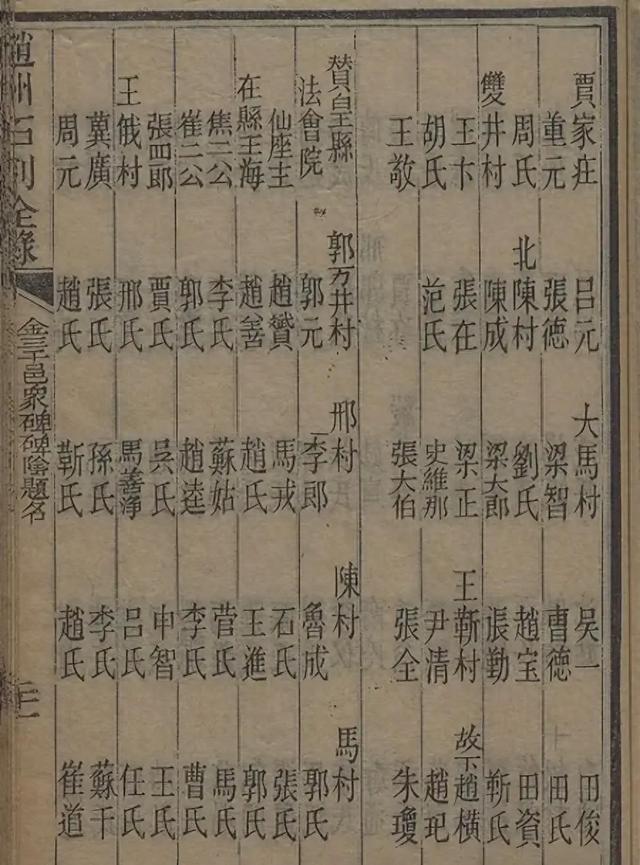 賈家庄 呂元 大馬村 吴一 田俊
重元 張德 梁智 曹德 田氏
周氏 北陳村 劉氏 趙宝 田資
雙井村 陳成 梁大郎 張勤 靳氏
王卞 張在 梁正 王靳村 故下趙橫
胡氏 范氏 史維那 尹清 趙玘
王敬 張大伯 張全 朱瓊
贊皇縣 郭万井村 邢村 陳村 馬村
法會院 郭元 李郎 魯成 郭氏
仙座主 趙贇 馬戒 石氏 張氏
在縣王海 趙善 趙氏 王進 郭氏
焦二公 李氏 蘇姑 菅氏 馬氏
崔二公 郭氏 趙逵 李氏 曹氏
張四郎 賈氏 吳氏 申智 王氏
王俄村 邢氏 馬善淨 吕氏 任氏
冀廣 張氏 孫氏 李氏 蘇干
周元 趙氏 靳氏 趙氏 崔道
趙州石刻全錄 金三千邑眾碑碑陰題名